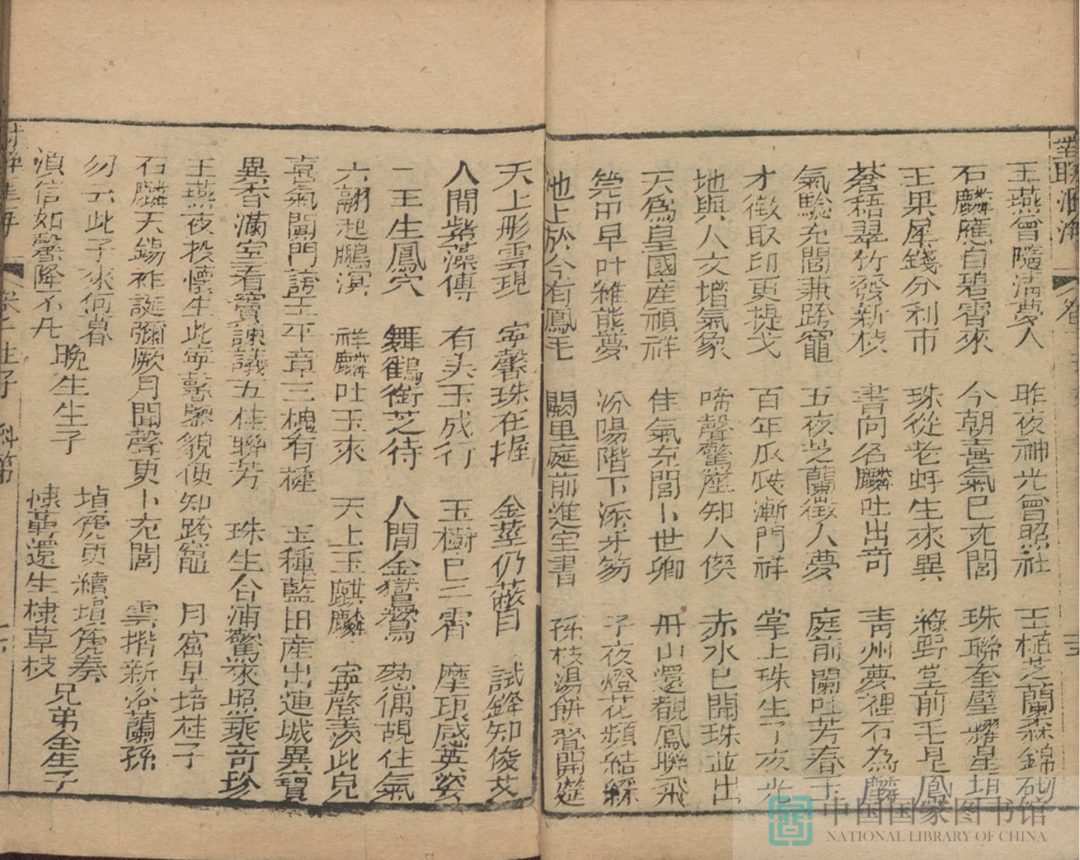 對聯淵海
玉燕曾隨清夢入 昨夜神光曾照社 玉植芝蘭森錦砌
石麟應自碧霄來 今朝喜氣已充閭 珠聯奎璧耀星垣
玉果犀錢分利市 珠從老蚌生來異 綠野堂前毛是鳳
蒼梧翠竹發新枝 書向名麟吐出奇 青州夢裡石為麟
氣驗充閭兼跨竈 五夜芝蘭徵人夢 庭前蘭吐芳春玉
才徵取印更提戈 百年瓜瓞漸門祥 掌上珠生子夜光
地與人文增氣象 啼聲驚座知人傑 赤水已開珠並出
天為皇國產禎祥 佳氣充閭卜世卿 丹山還覩鳳聯飛
早叶維熊夢 汾陽階下添牙笏 子夜燈花頻結綵
池上於今有鳳毛 闕里庭前進室書 孫枝湯餅習開筵
天上彤雲現 寧馨珠在握 金莖仍 試啼知俊艾
人間紫藻傳 有美玉成行 玉樹已三霄 摩頂感英姿
王生鳳穴 舞鶴銜芝待 人間金 鸑鷟 住氣
六翮起鵬溟 祥麟吐玉來 天上玉麒麟 寧馨羨此兒
喜氣闐門誇王平章三槐有種 玉種藍田產出連城異寶
異香滿室看竇諫議五桂聯芳 珠生合浦驚來照乘奇珍
玉燕夜投懷生此寧馨驗貌便知跨竈 月窟早培桂子
石麟天錫祚誕彌厥月聞聲更卜充閭 雲揩新浴蘭孫
勿云此子來何暮 塤篪更續塤篪奏
須信如馨降不凡 晚生生子 棣萼還生棣草枝 兄弟全生子